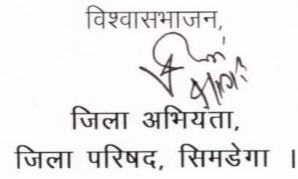 विश्वासभाजन,
जिला अभियता,
जिला परिषद, सिमडेगा ।